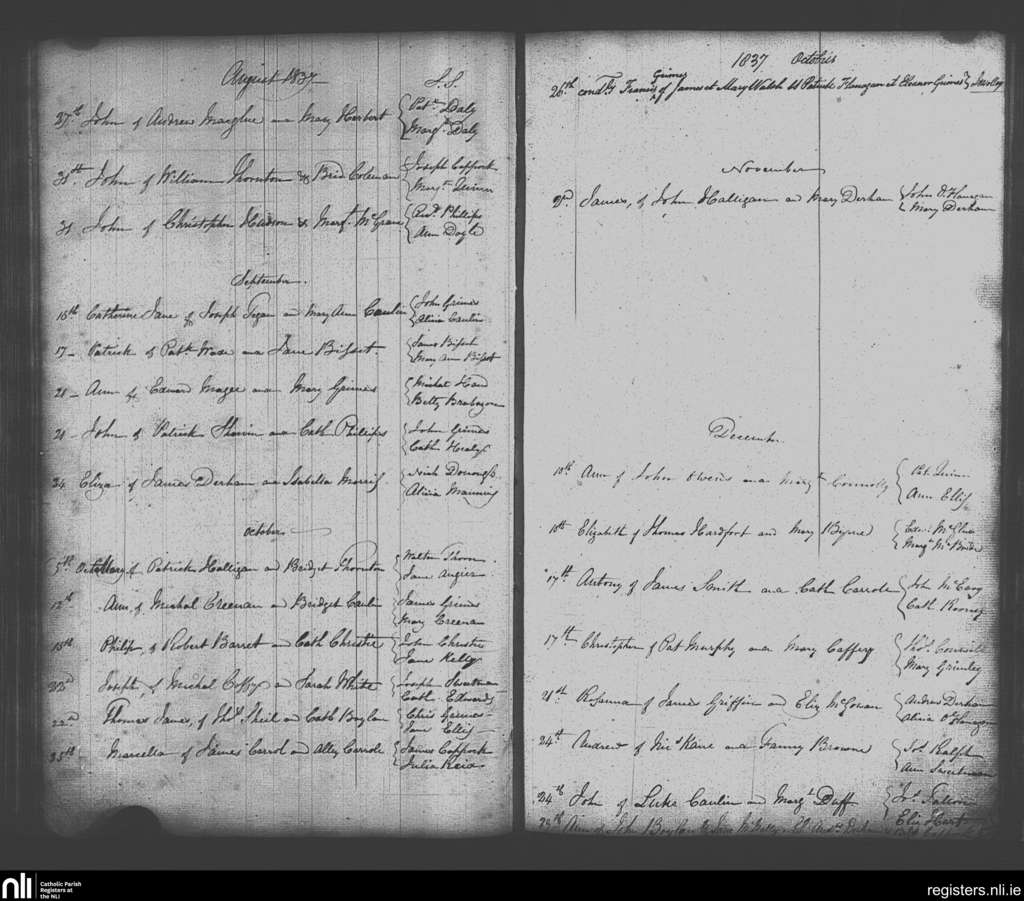 August 1837
S.S.
27th John of Andrew and Mary Herbert Patk Daly
Margt Daly
31th John of William Thornton & Brid Coleman Joseph Coppock
Margt Quinn
31 John of Christophr Hudson & Margt McGrane Andw Phillips
Ann Doyle
September
15th Catherine Jane of Joseph and Mary Ann Caulin John Grimes
Alicia Caulin
17 Patrick of Patk and Jane Bisset James Bisset
Mary Ann Bisset
21 Ann of Edward Magee and Mary Grimes Michal
Betty Brabazon
21 John of Patrick and Cath Phillips John Grimes
Cath Healy
24 Eliza of James Derham and Isabella Morris
Alicia
October
5th Octob Mary of Patrick Halligan and Bridget Thornton Walter
Jane Angier
12th Ann of Michal Creenan and Bridget Caulin James Grimes
Mary Creenan
15th Philip of Robert Barret and Cath Christie John Christie
Jane Kelly
22nd Joseph of Michal Coffy and Sarah White Joseph Sweetman
Cath Edwards
22nd Thomas James of Thos Sheil and Cath Boylan Chris Grimes
Jane Ellis
25th Marcella of James Carrol and Alley Carrole James Coppock
Julia Reid
1837 Octobris
Grimes
26th condly Francis of James et Mary Walsh SS Patrick Flanagan et Eleanor Grimes
November
2d James, of John Halligan and Mary Derham John O'Flanagan
Mary Derham
December
10th Ann of John Owens and Margt Connolly Pat Quinn
Ann Ellis
10th Elizabeth of Thomas Hardfort and Mary Byrne
Margt
17th Antony of James Smith and Cath Carrole John McEvoy
Cath Rooney
17th Christopher of Pat Murphy and Mary Caffery Thos
Mary Grimley
21st Rosanna of James Griffin and Eliz McGowan Andrew Derham
Alicia O'Flanagan
24th Andrew of Nics Kane and Fanny Browne Jos Ralph
Ann Sweetman
24th John of Luke Caulin and Margt Duff Jos Fallon
Eliz Hart
25th Ann of John Boylan
nli Catholic Parish
Registers at
the NLI
registers.nli.ie